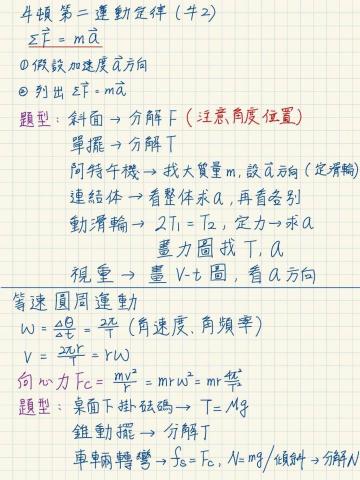 牛頓第二運動定律 (牛2)
ΣF⃗ = ma⃗
① 假設加速度a⃗方向
② 列出 ΣF⃗ = ma⃗
題型：斜面 → 分解F (注意角度位置)
單擺 → 分解T
阿特午機 → 找大質量m, 設a⃗方向 (定滑輪)
連結体 → 看整体求a, 再看各別
動滑輪 → 2T₁ = T₂, 定力→求a
畫力圖找 T, a
視重 → 畫 V-t 圖, 看a方向
等速圓周運動
W = Δθ/Δt = 2π/T (角速度、角頻率)
V = 2πr/T = rW
向心力Fc = mv²/r = mrw² = mr 4π²/T²
題型：桌面下掛砝碼 → T = Mg
錐動擺 → 分解T
車輛轉彎 → fs = Fc, N = mg/傾斜 → 分解N